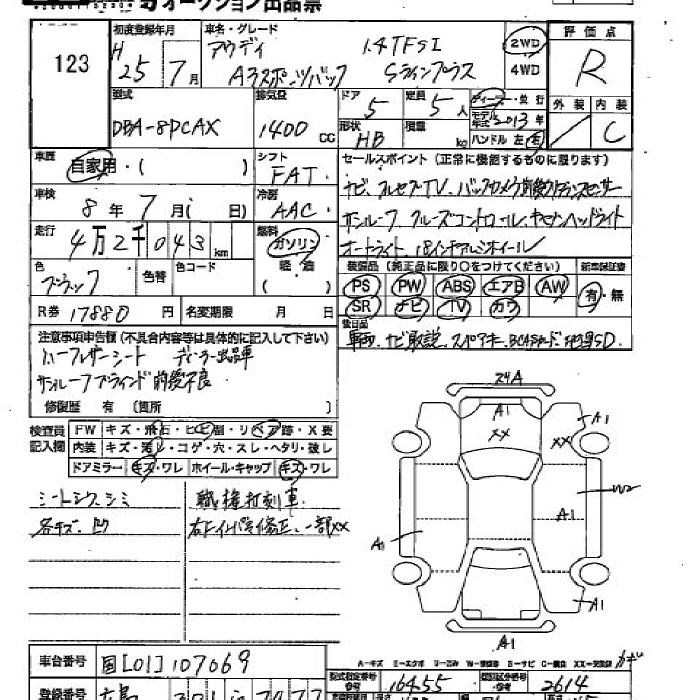 オークション出品票
123
初度登録年月
H 25年 7月
車名・グレード
アウディ 1.4TFSI
A3スポーツバック Sラインプラス
2WD
4WD
評価点
R
外装 内装
C
型式
DBA-8PCAX
排気量
1400 cc
ドア
5
定員
5人
ディーラー・並行
モデル年式 2013年
形状
HB
積量
kg
ハンドル 左 右
車歴
自家用・( )
シフト
FAT
セールスポイント(正常に機能するものに限ります)
車検
8年 7月( 日)
冷房
AAC
ナビ、フルセグTV、バックカメラ
サンルーフ クルーズコントロール
オートライト、18インチアルミホイール
走行
4万2千043 km
燃料
ガソリン
軽・油
( )
色
ブラック
色替
色コード
装備品(純正品に限り○をつけてください)
新車保証書
PS PW ABS エアB AW
SR ナビ TV カワ
有・無
R券 17880円
名変期限 月 日
後日品
注意事項申告欄(不具合内容等は具体的に記入して下さい)
ハーフレザーシート ディーラー出品車
サンルーフブラインド前後不良
修復歴 有 〔箇所 〕
検査員記入欄
FW キズ・飛石・ヒビ割・リペア跡・X要
内装 キズ・汚レ・コゲ・穴・スレ・ヘタリ・破レ
ドアミラー キズ・ワレ
ホイール・キャップ キズ・ワレ
シートシワ、シミ
各キズ、凹
職権打刻車
一部XX
24A
A1
XX
A1
XX
W2
A1
A1
A1
A1
車台番号
国[01]107069
A-キズ
登録番号
型式指定番号
16455
類別区分番号
2614